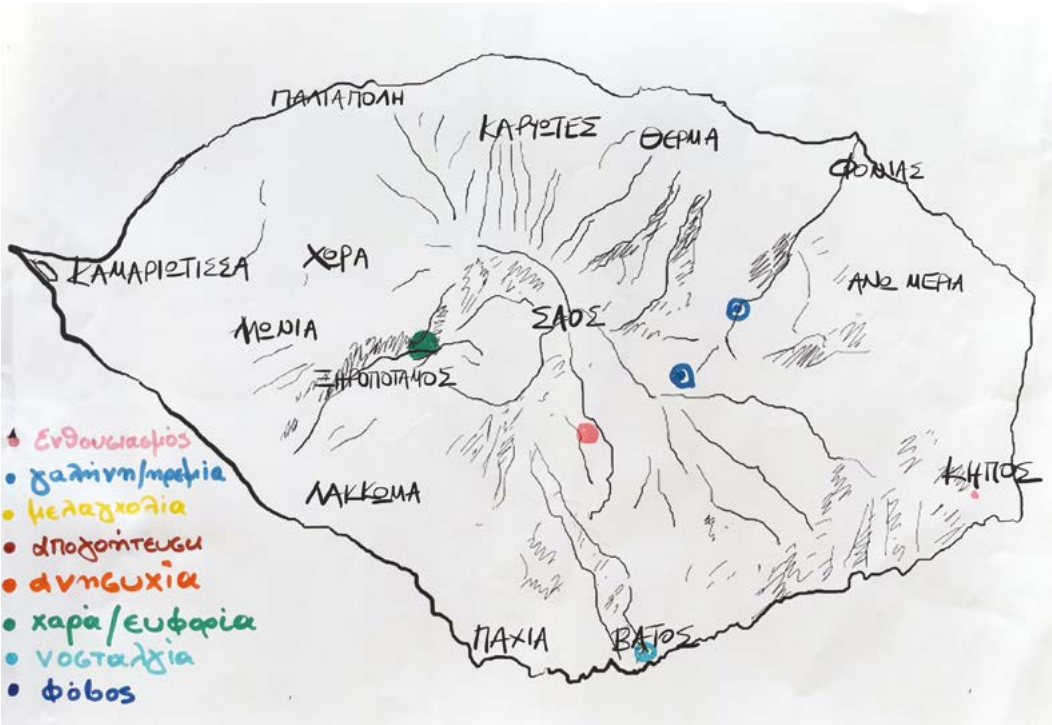 ΠΑΛΙΑΠΟΛΗ
ΚΑΡΥΩΤΕΣ
ΘΕΡΜΑ
ΦΟΝΙΑΣ
ΚΑΜΑΡΙΩΤΙΣΣΑ
ΧΩΡΑ
ΑΝΩ ΜΕΡΙΑ
ΜΩΝΙΑ
ΣΑΟΣ
ΞΗΡΟΠΟΤΑΜΟΣ
ΛΑΚΚΩΜΑ
ΚΗΠΟΣ
ΠΑΧΙΑ
ΒΑΤΟΣ
Ενθουσιασμός
γαλήνη/ηρεμία
μελαγχολία
απογοήτευση
ανησυχία
χαρά/ευφορία
νοσταλγία
φόβος